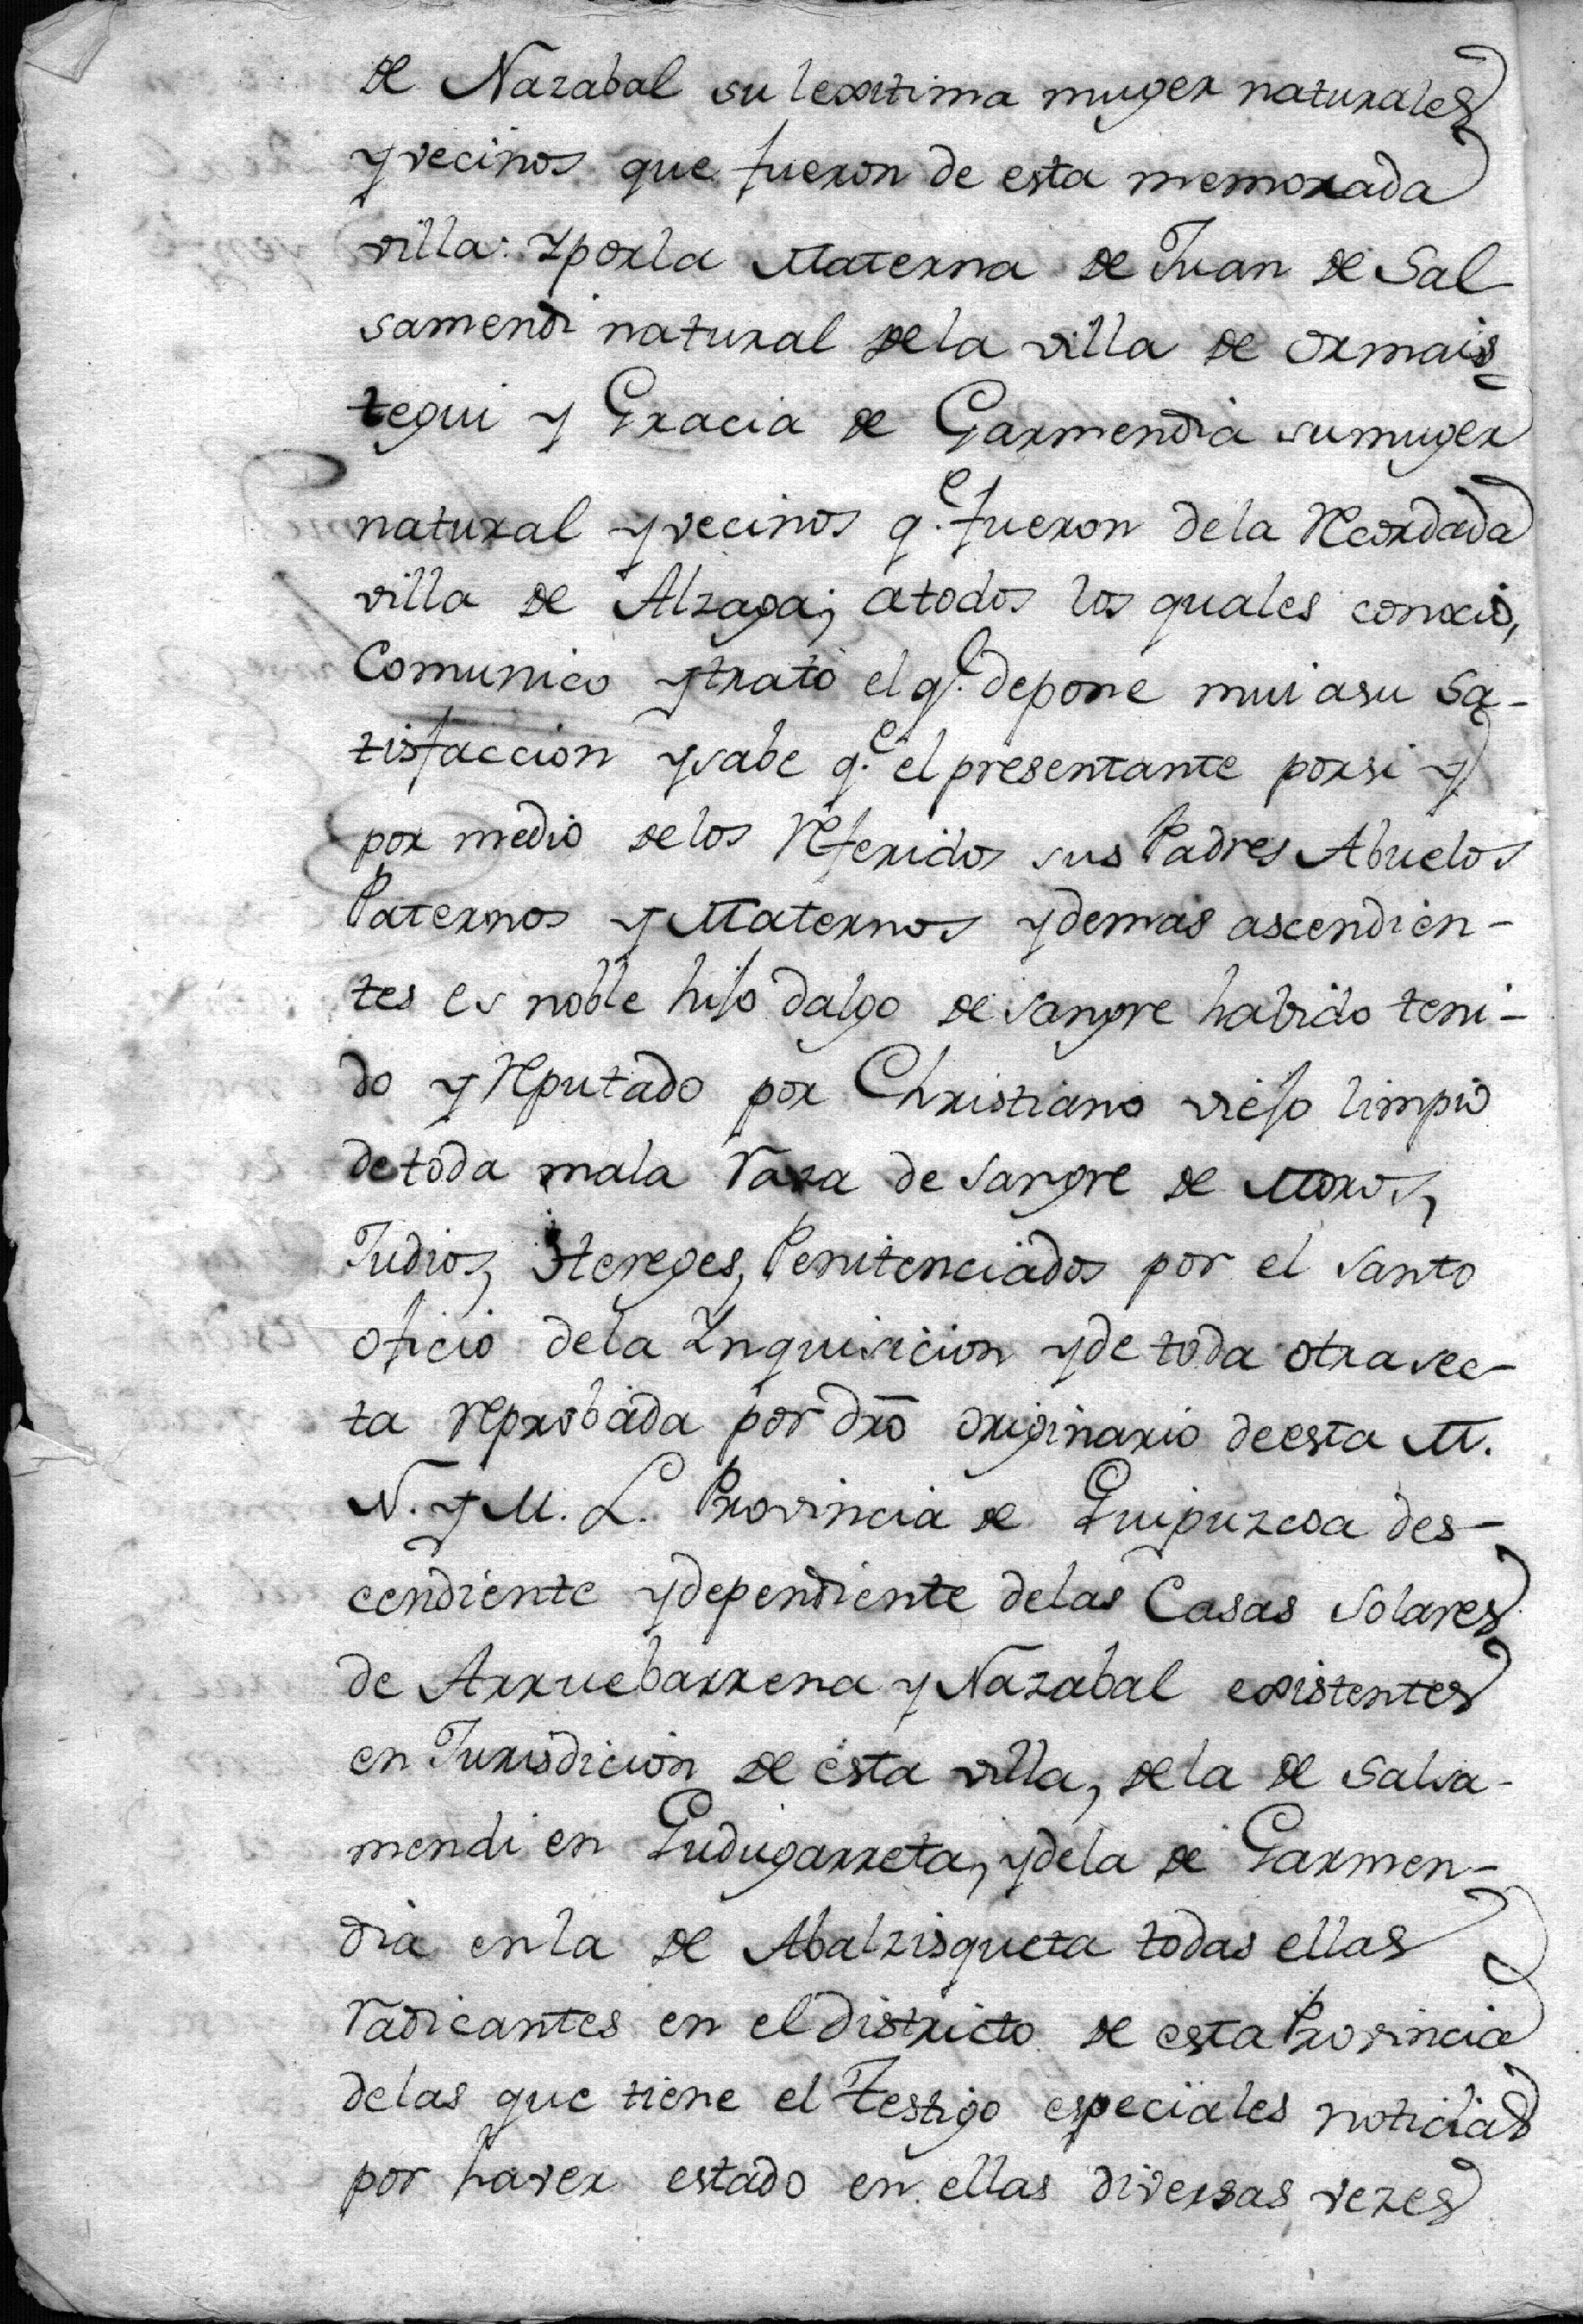 de Nazabal su lexitima muger naturales
y vecinos que fueron de esta memorada
villa: Y por la Materna de Juan de Sal
samendi natural de la villa de Ormais-
tegui y Gracia de Garmendia su muger
natural y vecinos q.e fueron de la Recordada
villa de Alzaga; a todos los quales conocio,
Comunico y trató el q.e depone mui a su Sa-
tisfaccion y sabe q.e el presentante por si y
por medio de los Referidos sus Padres Abuelos
Paternos y Maternos y demas ascendien-
tes es noble hijo dalgo de sangre habido teni-
do y Reputado por Christiano viejo limpio
de toda mala raza de sangre de Moros,
Judios, Hereges, Penitenciados por el Santo
oficio de la Inquisicion y de toda otra sec-
ta Reprobada por dro originario de esta M.
N. y M. L. Provincia de Guipuzcoa des-
cendiente y dependiente de las Casas Solares
de Arruebarrena y Nazabal existentes
en Jurisdicion de esta villa, de la de Salsa-
mendi en Gudugarreta, y de la de Garmen-
dia en la de Abalzisqueta todas ellas
radicantes en el districto de esta Provincia
de las que tiene el Testigo especiales noticias
por haver estado en ellas diversas vezes